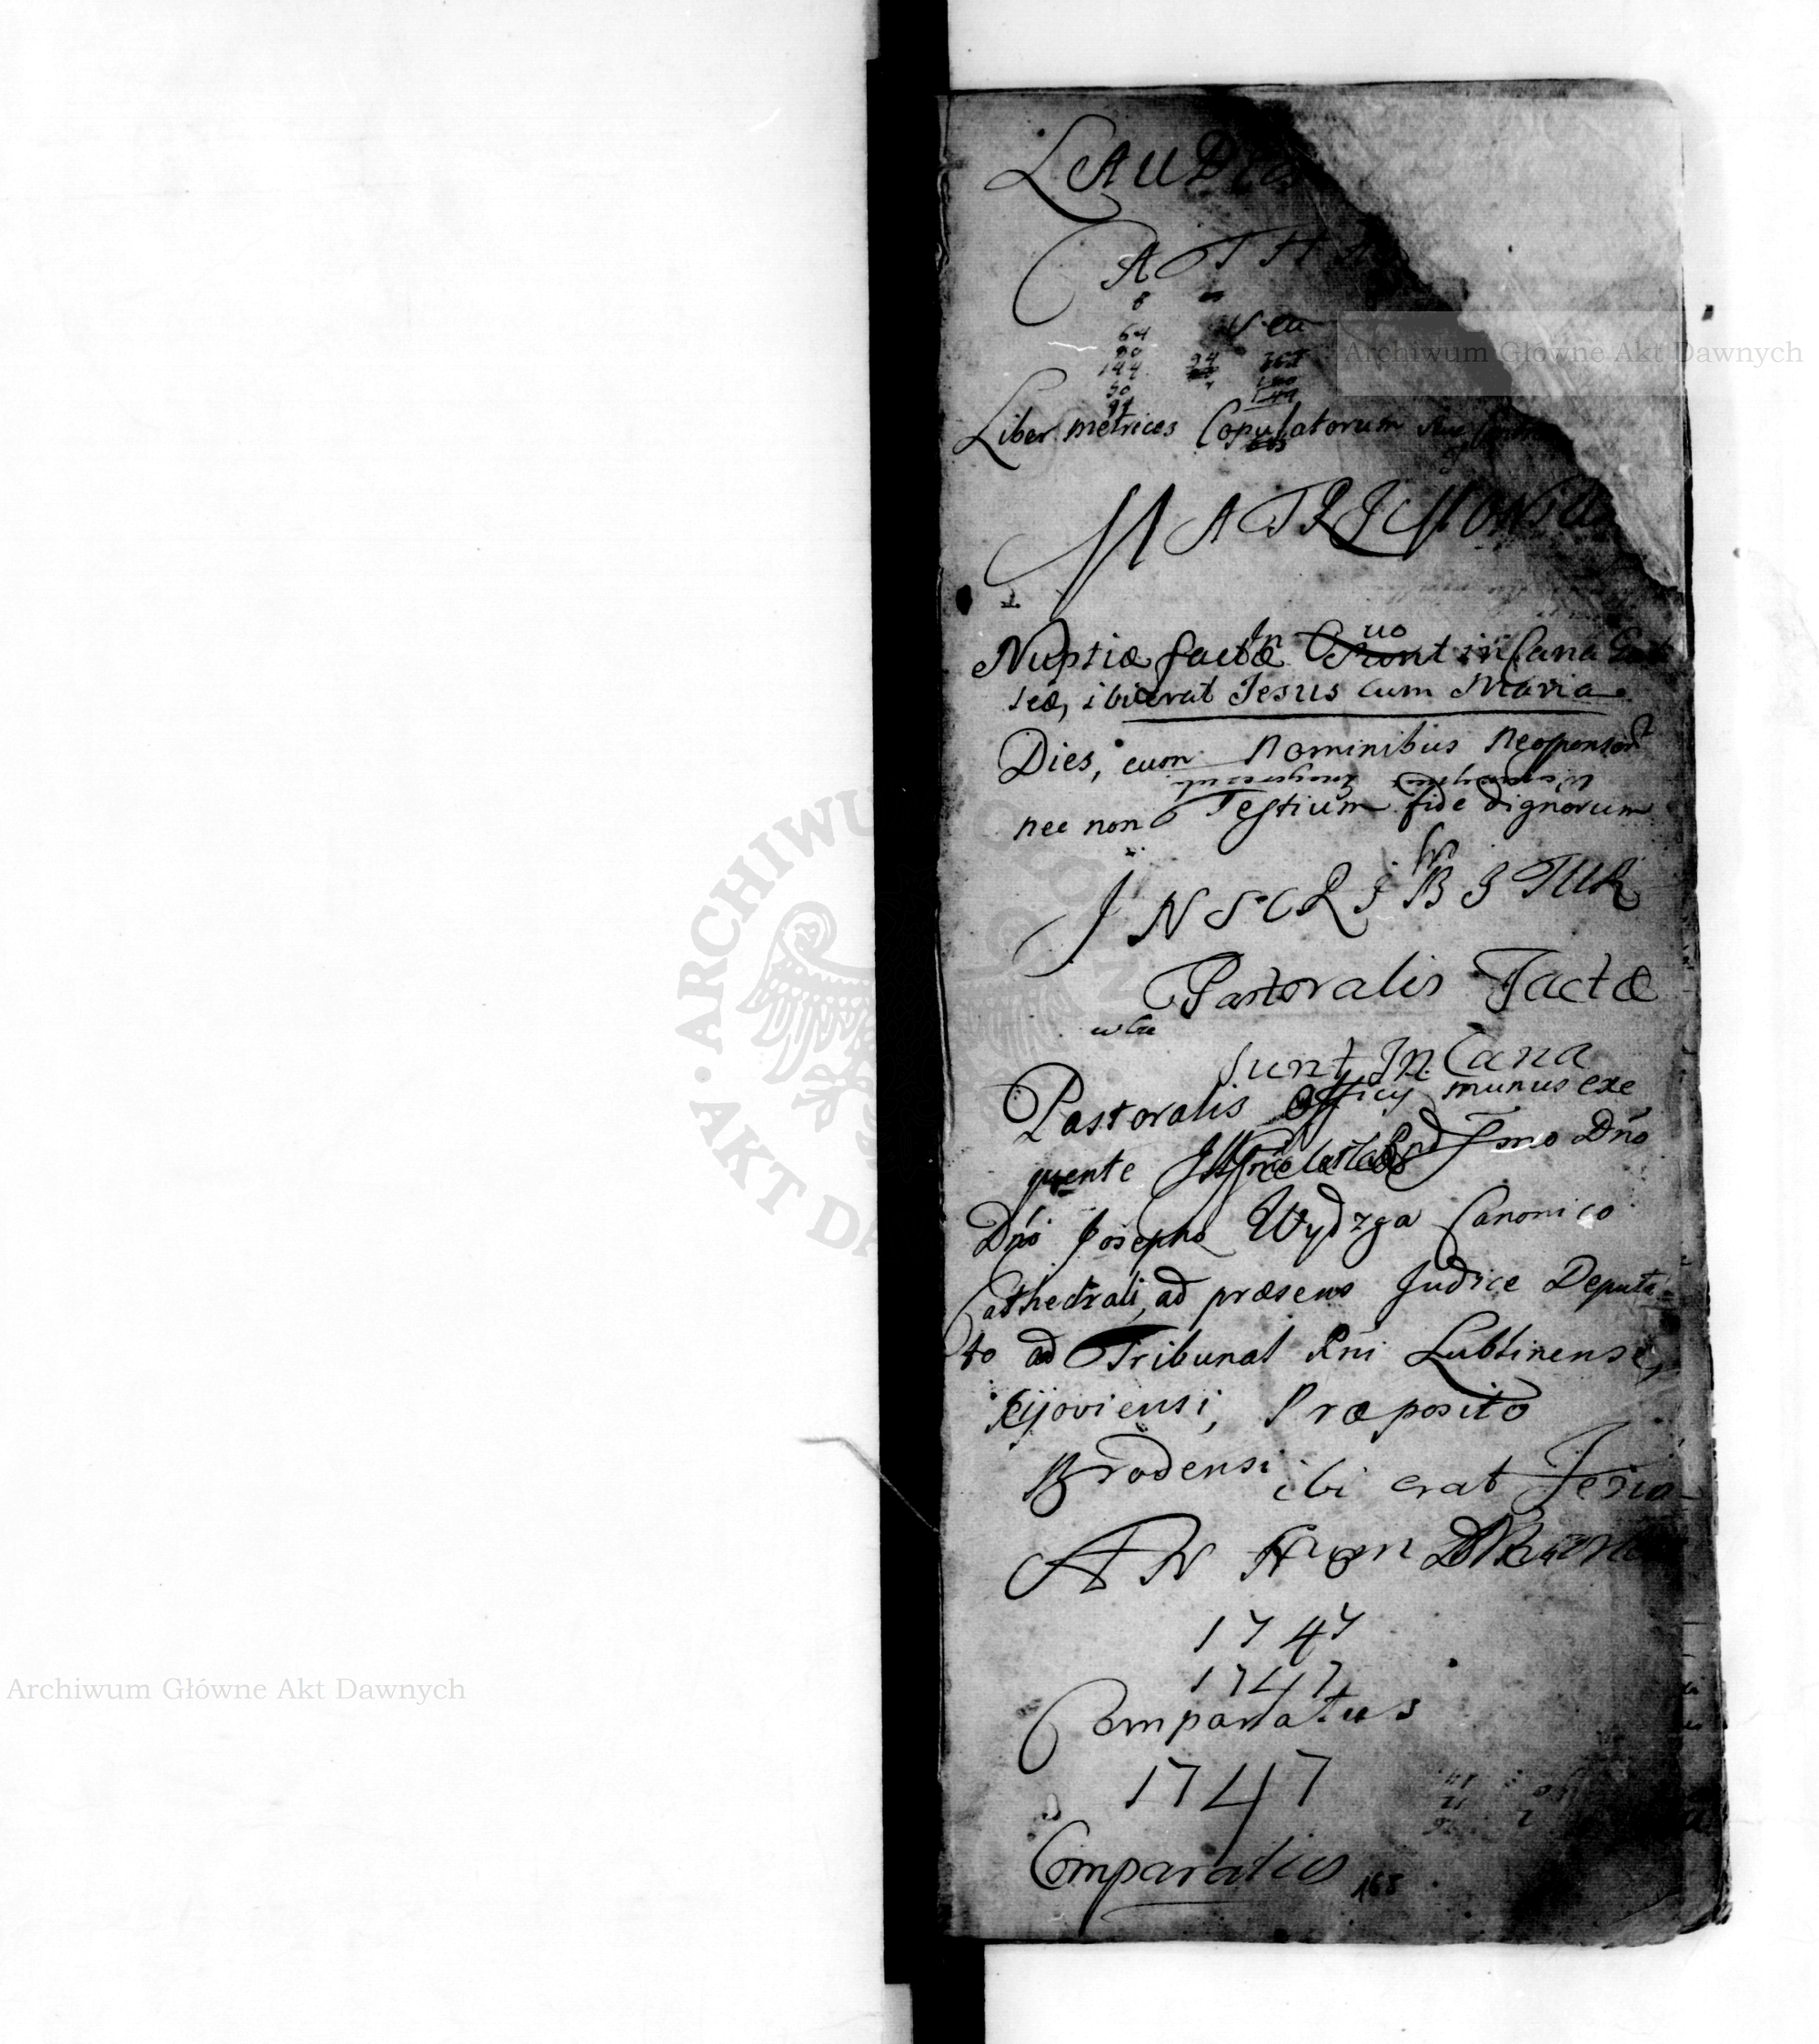 LAUDES
CATHA
8
64
80
144
50
94
94
Seu
Liber metrices Copulatorum
MATRIMONIA
In
uo
Nuptiæ factæ sunt in Cana Gali
leæ, ibi erat Jesus cum Maria
Dies, cum Nominibus Neosponsor
nec non Testium fide dignorum
INSCRIBITUR
Pastoralis Factæ
sunt In Cana
Pastoralis Officij munus exe
quente Dno
Dno Josepho Wydzga Canonico
Cathedrali, ad præsens Judice Deputa-
to ad Tribunal Rni Lublinense,
Kijoviensi, Præposito
Brodensi ibi erat Jesus
1747
1747
Comparatus
1747
Comparatus 168
ARCHIWUM GŁÓWNE AKT DAWNYCH
Archiwum Główne Akt Dawnych
Archiwum Główne Akt Dawnych